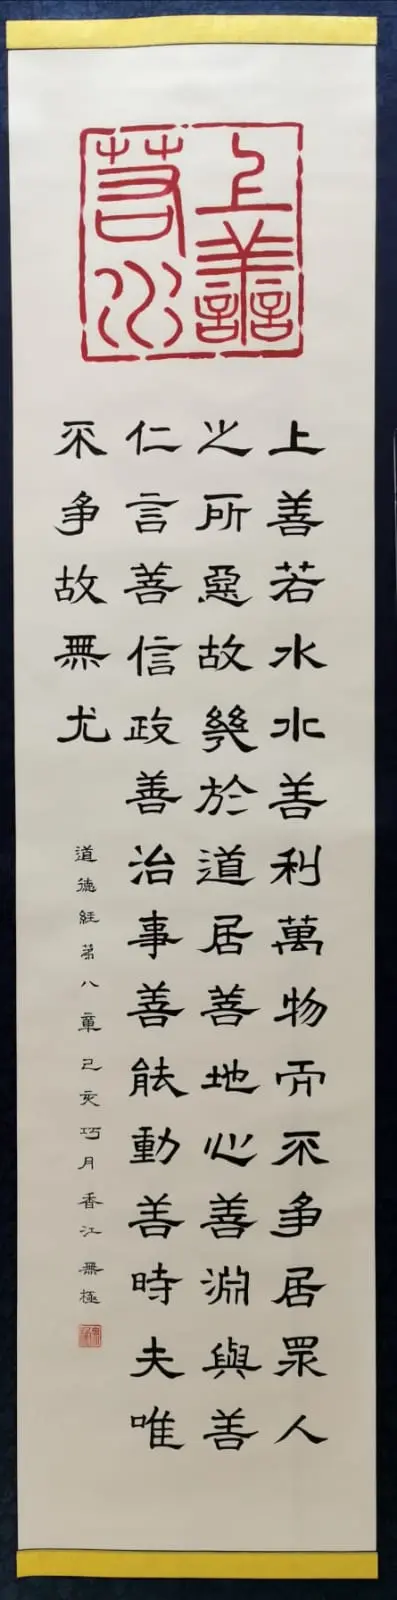 上善
若水
上善若水水善利萬物而不爭居眾人
之所惡故幾於道居善地心善淵與善
仁言善信政善治事善能動善時夫唯
不爭故無尤
道德經第八章己亥巧月香江無極